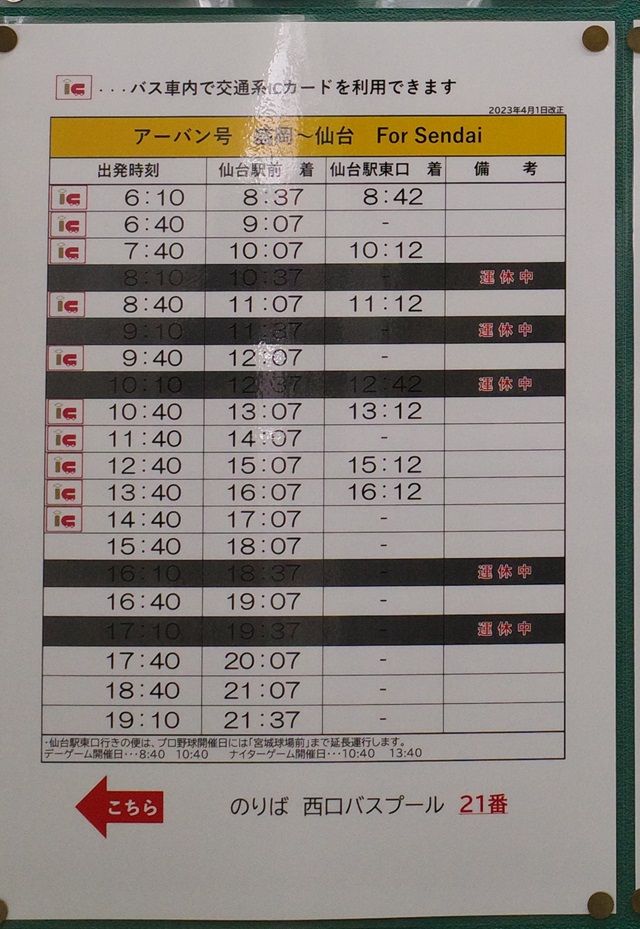 ic ・・・バス車内で交通系ICカードを利用できます
2023年4月1日改正
アーバン号 盛岡～仙台 For Sendai
出発時刻 仙台駅前 着 仙台駅東口 着 備 考
ic 6:10 8:37 8:42
ic 6:40 9:07 -
ic 7:40 10:07 10:12
8:10 10:37 - 運休中
ic 8:40 11:07 11:12
9:10 11:37 - 運休中
ic 9:40 12:07 -
10:10 12:37 12:42 運休中
ic 10:40 13:07 13:12
ic 11:40 14:07 -
ic 12:40 15:07 15:12
ic 13:40 16:07 16:12
ic 14:40 17:07 -
15:40 18:07 -
16:10 18:37 - 運休中
16:40 19:07 -
17:10 19:37 - 運休中
17:40 20:07 -
18:40 21:07 -
19:10 21:37 -
・仙台駅東口行きの便は、プロ野球開催日には「宮城球場前」まで延長運行します。
デーゲーム開催日・・・8:40 10:40 ナイターゲーム開催日・・・10:40 13:40
こちら のりば 西口バスプール 21番